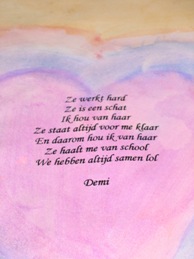 Ze werkt hard
Ze is een schat
Ik hou van haar
Ze staat altijd voor me klaar
En daarom hou ik van haar
Ze haalt me van school
We hebben altijd samen lol
Demi